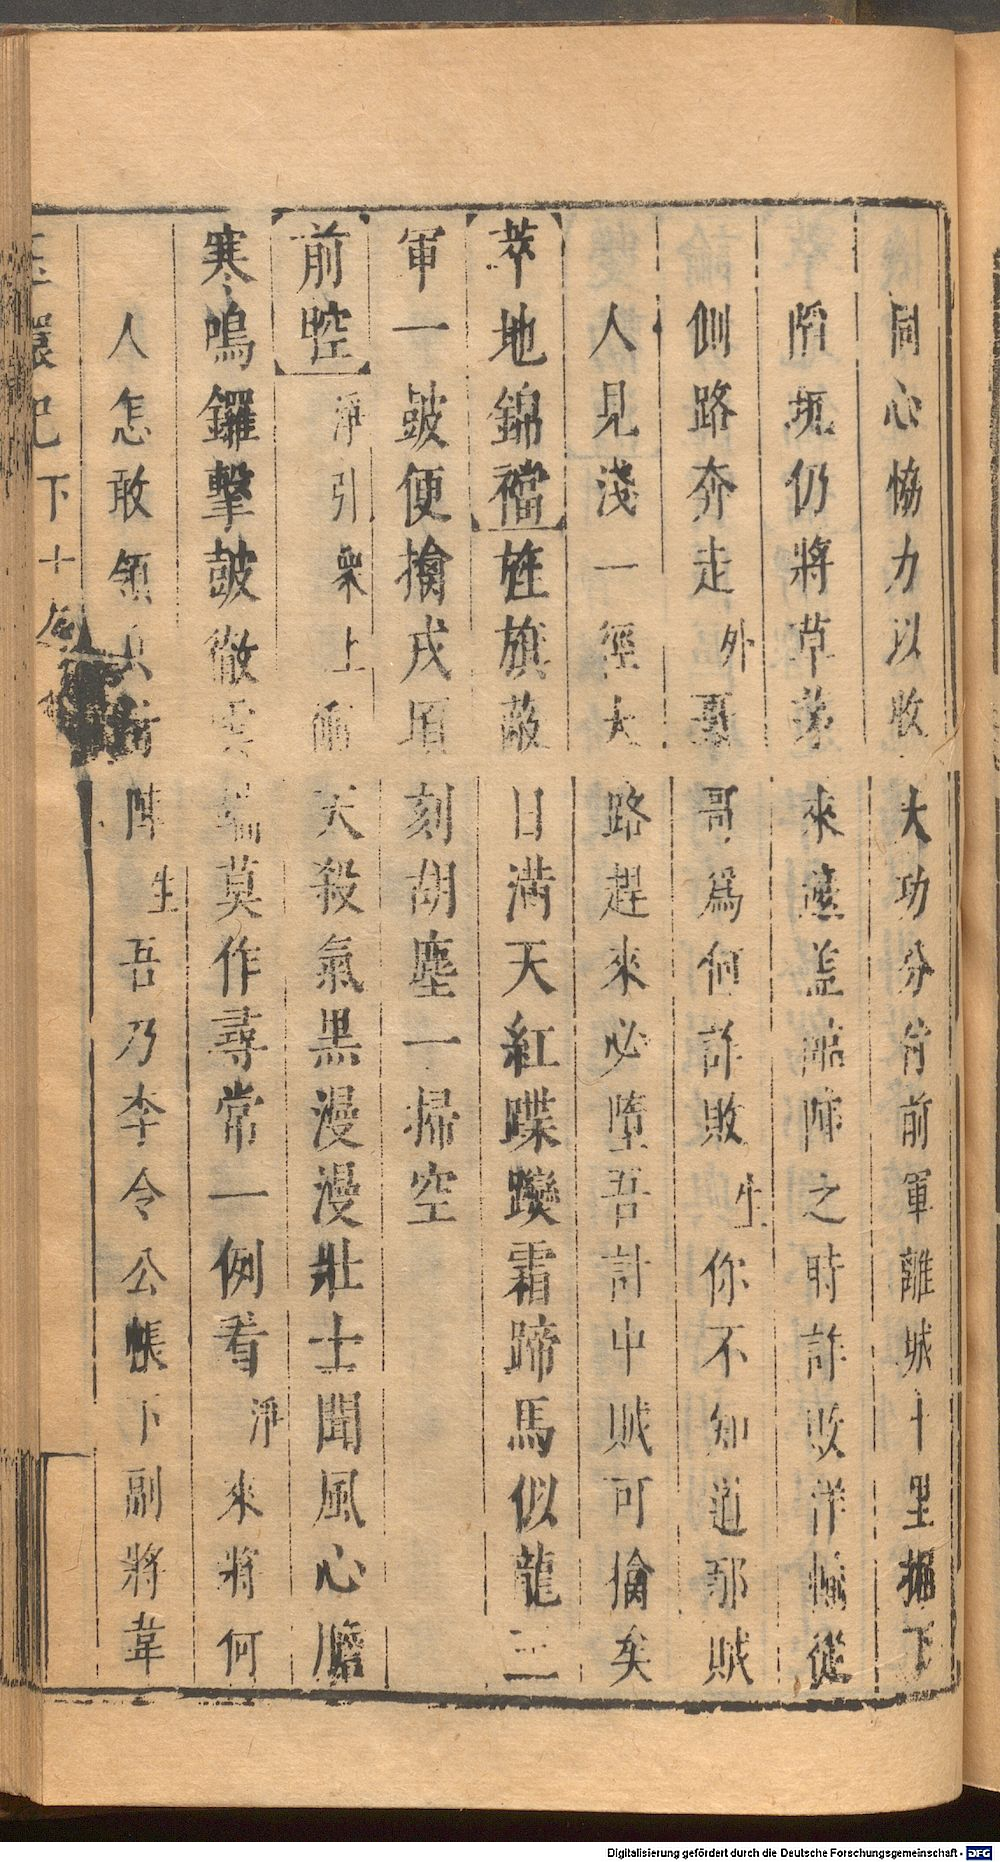 同心恊力以收大功分付前軍離城十里掘下
陷坑仍將草茅來遮盖臨陣之時詐敗洋輸從
側路奔走外聖哥爲何詐敗生你不知道那賊
人見淺一徑大路趕來必墮吾計中賊可擒矣
萃地錦襠旌旗蔽日滿天紅蹀躞霜蹄馬似龍三
軍一鼓便擒戎頃刻胡塵一掃空
前腔淨引衆上衝天殺氣黑漫漫壯士聞風心膽
寒鳴鑼擊鼓徹雲端莫作尋常一例看淨來將何
人怎敢領兵衝陣生吾乃李令公帳下副將韋
玉環記下十
Digitalisierung gefördert durch die Deutsche Forschungsgemeinschaft - DFG